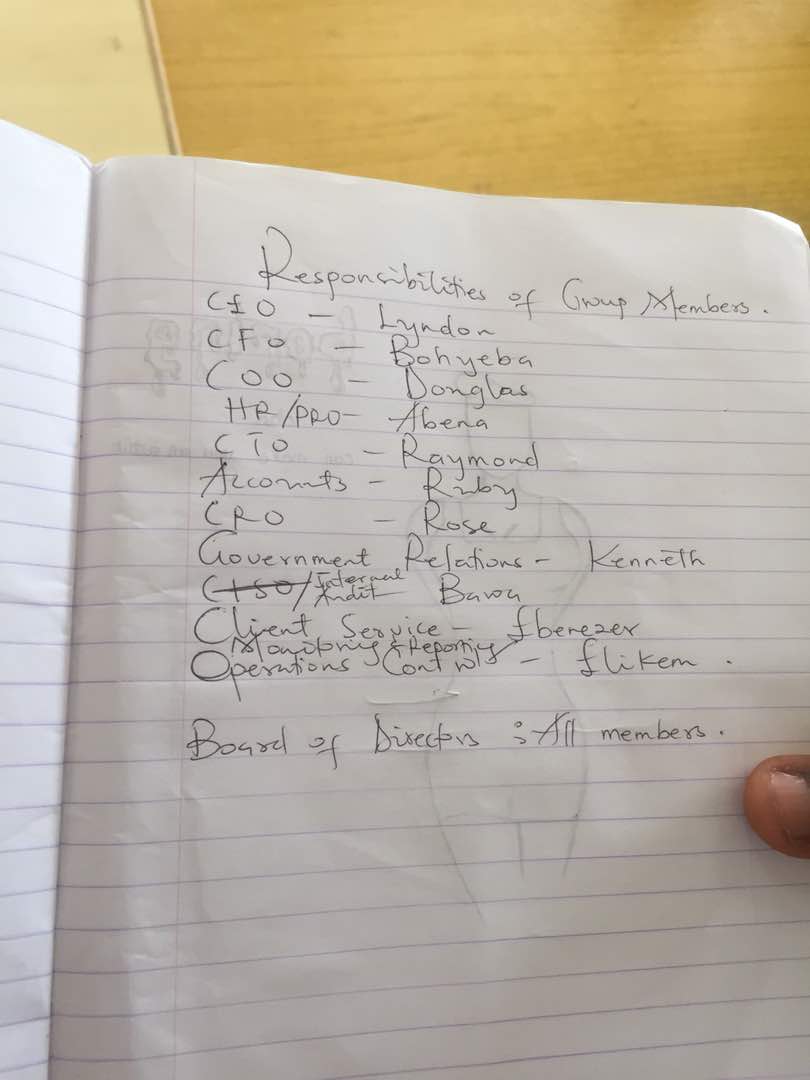 Responsibilities of Group Members.
CEO - Lyndon
CFO - Bohyeba
COO - Douglas
HR/PRO - Abena
CTO - Raymond
Accounts - Ruby
CRO - Rose
Government Relations - Kenneth
CISO/Internal Audit - Bawa
Client Service - Ebenezer
Monitoring & Reporting
Operations Control - Elikem.
Board of Directors : All members.